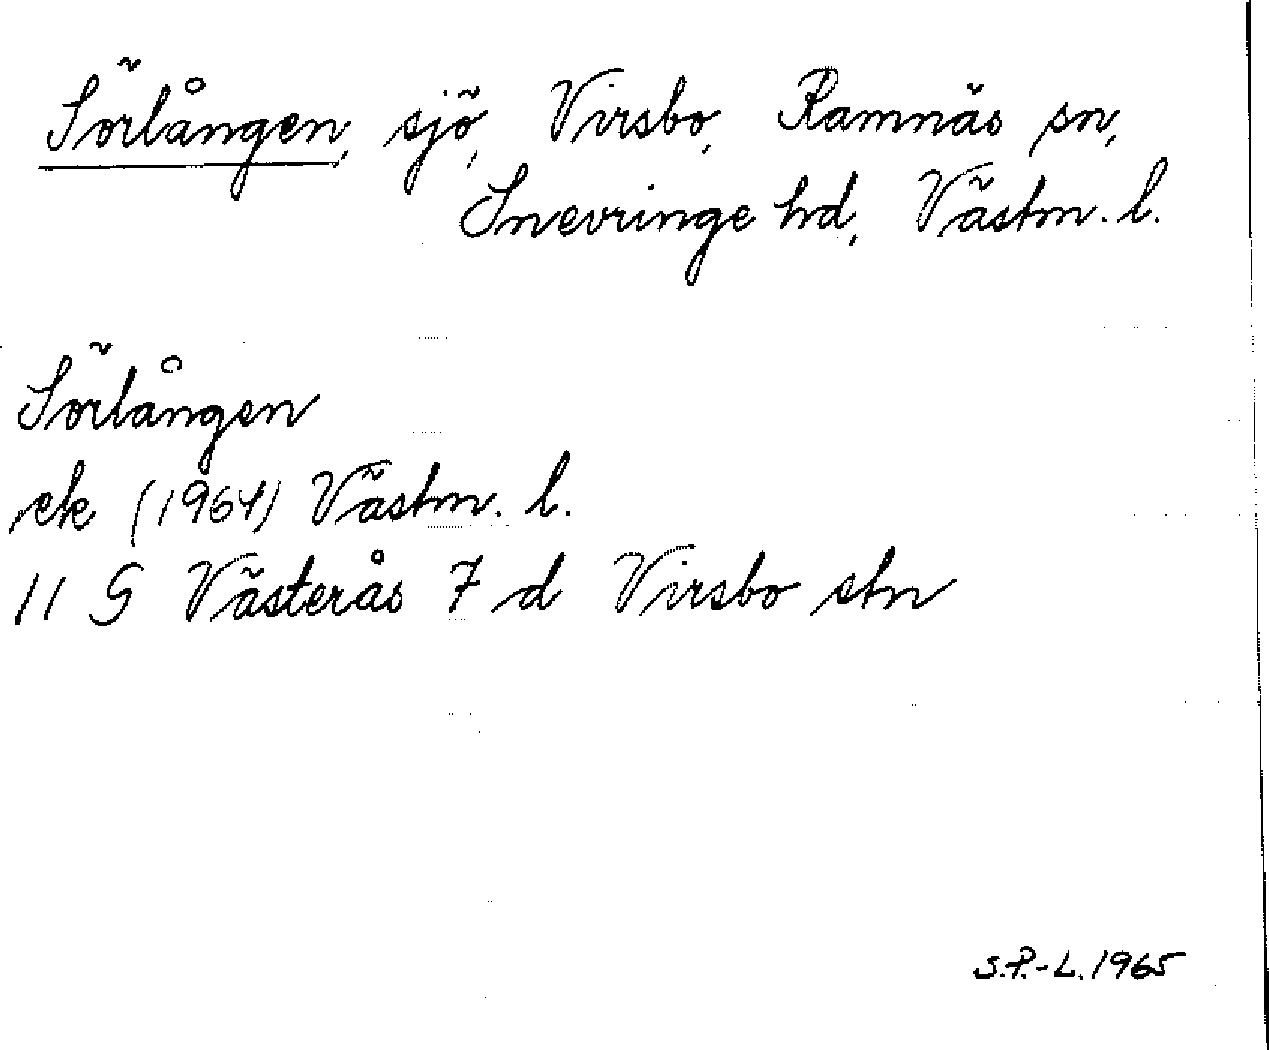 Sörlången, sjö, Virsbo, Ramnäs sn,
Snevringe hd, Västm. l.
Sörlången
ek (1964) Västm. l.
11 G Västerås 7 d Virsbo stn
S.P.-L. 1965